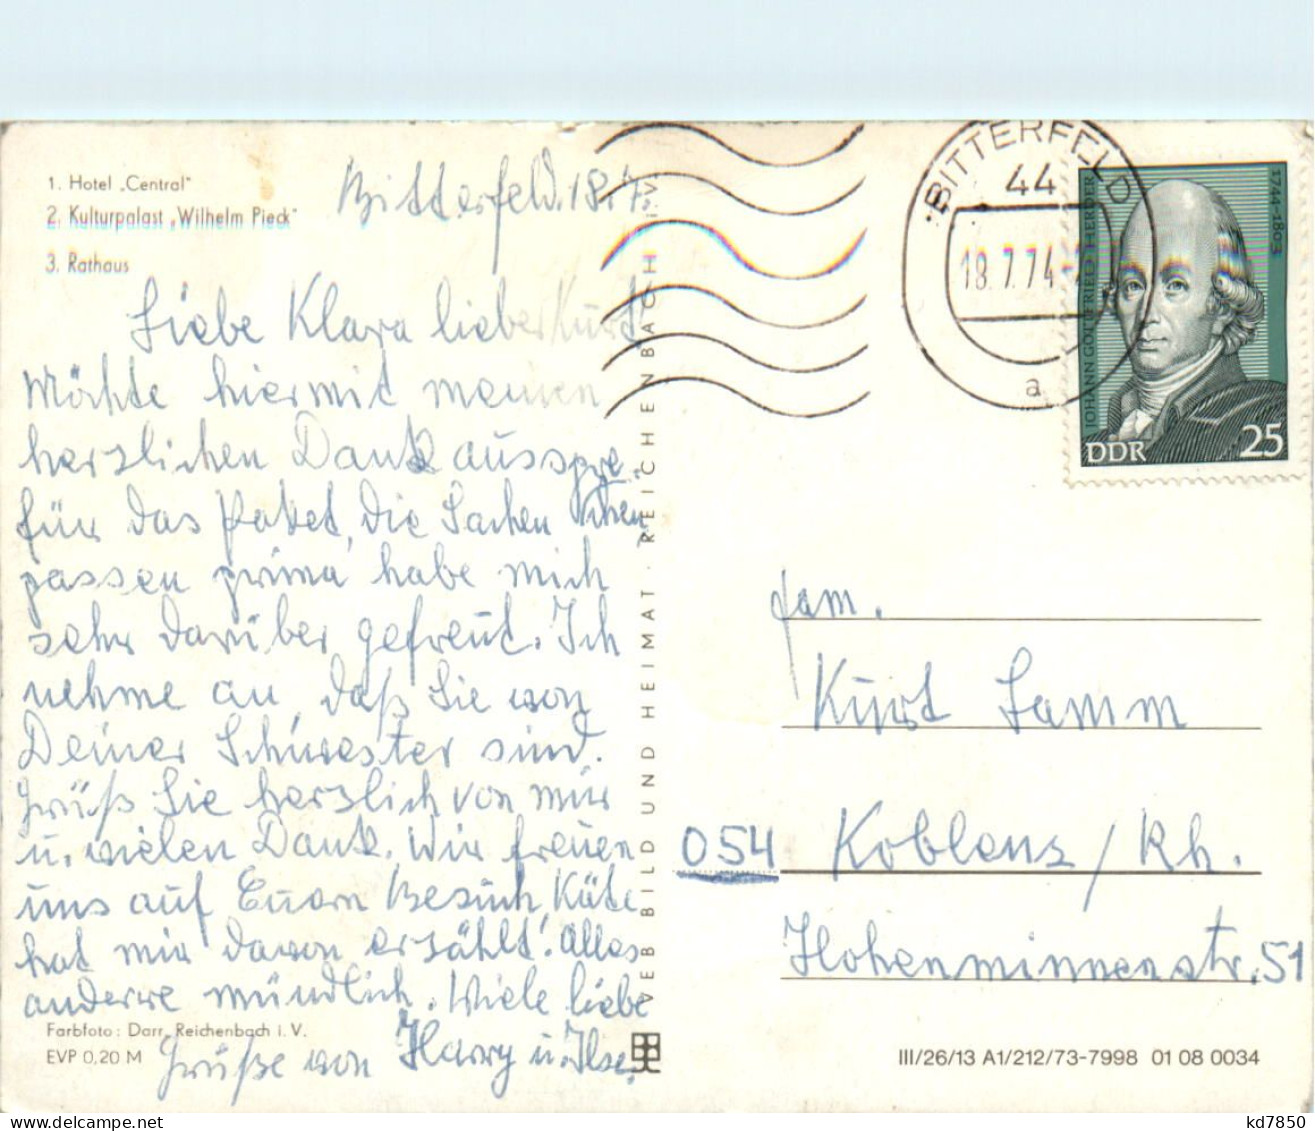 1. Hotel „Central"
2. Kulturpalast „Wilhelm Pieck"
3. Rathaus
Bitterfeld. 18.7.
Liebe Klara lieber Kurt
Möchte hiermit meinen
herzlichen Dank ausspre-
chen
für das Paket, die Sachen
passen prima habe mich
sehr darüber gefreut. Ich
nehme an, daß Sie von
Deiner Schwester sind.
Grüß Sie herzlich von mir
u. vielen Dank. Wir freuen
uns auf Euern Besuch Käte
hat mir davon erzählt! Alles
andere mündlich. Viele liebe
Grüße von Harry u. Ilse.
Farbfoto: Darr, Reichenbach i. V.
EVP 0,20 M
VEB BILD UND HEIMAT · REICHENBACH i. V.
BITTERFELD
44
18.7.74
a
JOHANN GOTTFRIED HERDER
1744-1803
DDR
25
Fam.
Kurt Samm
054 Koblenz / Rh.
Hohenminnenstr. 51
III/26/13 A1/212/73-7998 01 08 0034
www.delcampe.net
kd7850